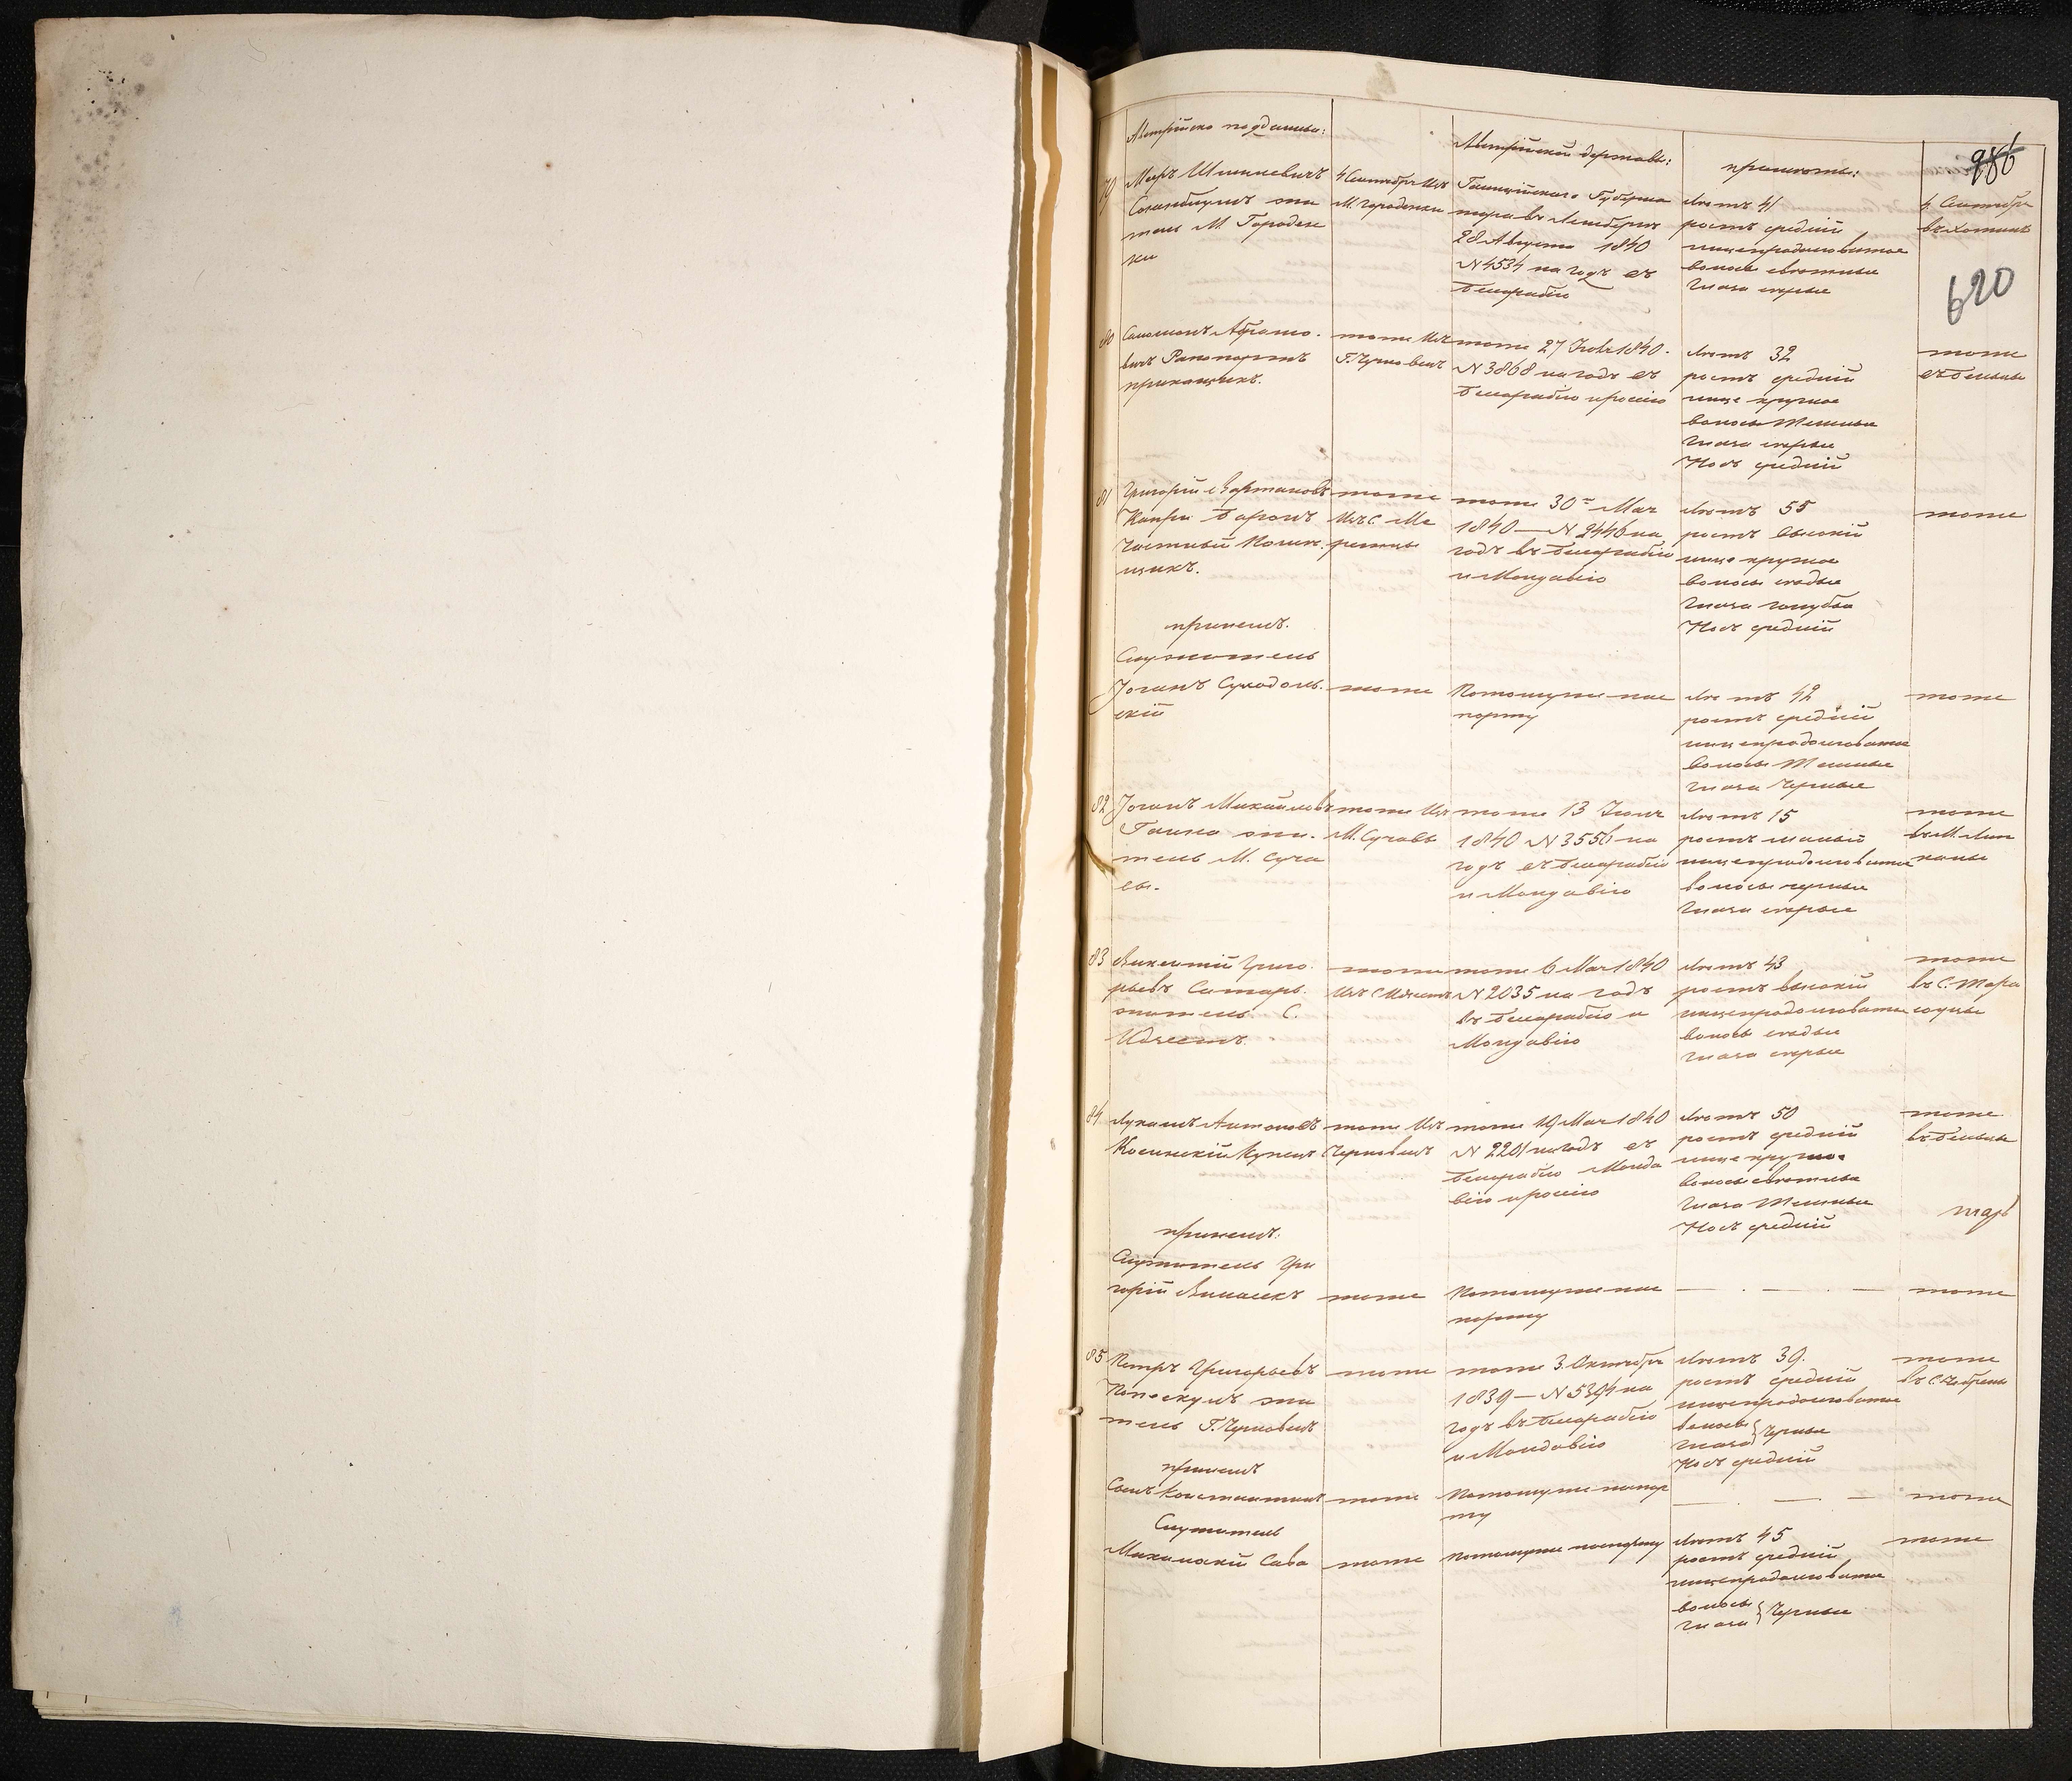 986
620
Австрійско подданны:
Австрійской державы:
приметы:
79
Меръ
жи
тель М. Городен
ки
4 Сентября Изъ
М. Городенки
Галиційскаго Губерна
тора въ Лемберге
28 Августа 1840
N 4534 на годъ въ
Бесарабію
Летъ 41
ростъ средній
лице продолговатое
волосы светные
Глаза серые
4 Сентября
въ Хотинъ
80
Соломонъ Абрамо-
вичъ Рапопортъ
прикащикъ.
тоже Изъ
Г. Черновецъ
тоже 27 Іюля 1840.
N 3868 на годъ въ
Бесарабію и россію
Летъ 32
ростъ средній
лице круглое
волосы Темные
Глаза серые
Носъ средній
тоже
въ бельцы
81
Григорій Вартановъ
Капри Баронъ
Частный Помеж
щикъ.
тоже
Изъ С.
тоже 30 Мая
1840 — N 2446 на
годъ въ Бесарабію
и Молдавію
Летъ 55
ростъ Высокій
лице круглое
волосы седые
Глаза голубые
Носъ средній
тоже
принемъ.
Служитель
Іоганъ Суходоль-
скій
тоже
Потомуже пас
порту
Летъ 42
ростъ средній
лице продолговатое
волосы Темные
глаза Черные
тоже
82
Іоганъ Михайловъ
Гайна жи-
тель М. Суча
вы.
тоже Изъ
М. Сучавы
тоже 13 Іюня
1840 N 3556 на
годъ въ Бесарабію
и Молдавію
Летъ 15
ростъ малый
лице продолговатое
волосы черные
Глаза серые
тоже
въ М. Лип
каны
83
Викентій Григо-
рьевъ
житель С.
тоже
Изъ С.
тоже 6 Мая 1840
N 2035 на годъ
въ Бесарабію и
Молдавію
Летъ 43
ростъ высокій
лице продолговатое
волосы седые
глаза серые
тоже
въ С. Тара
соуцы
84
Лукашъ Антоновъ
Косинскій Купецъ
тоже Изъ
Черновецъ
тоже 19 Мая 1840
N 2201 на годъ въ
Бесарабію Молда
вію и россію
Летъ 50
ростъ средній
лице круглое
волосы светные
Глаза Темные
Носъ средній
тоже
въ бельцы
принемъ:
Служитель Гри
горій
тоже
Потомуже пас
порту
— . — . —
тоже
85
Петръ Григорьевъ
жи
тель Г. Черновецъ
тоже
тоже 3 Октября
1839 — N 5394 на
годъ въ Бесарабію
и Молдавію
Летъ 39.
ростъ средній
лице продолговатое
волосы
глаза } Черные
Носъ средній
тоже
принемъ
Сынъ Константинъ
тоже
Потомуже паспор
ту
— . — . —
тоже
Служитель
Сава
тоже
Потомуже паспорту
Летъ 45
ростъ средній
лице продолговатое
волосы
глаза } Черные
тоже